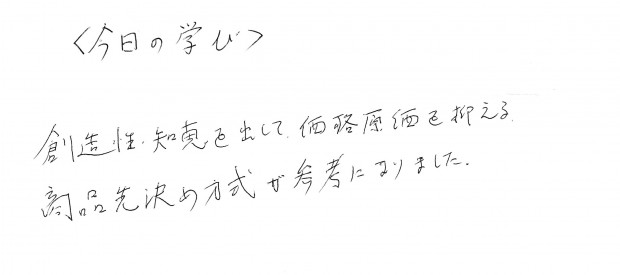 〈今日の学び〉
創造性・知恵を出して、価略原価を抑える
商品先決め方式が参考になりました。